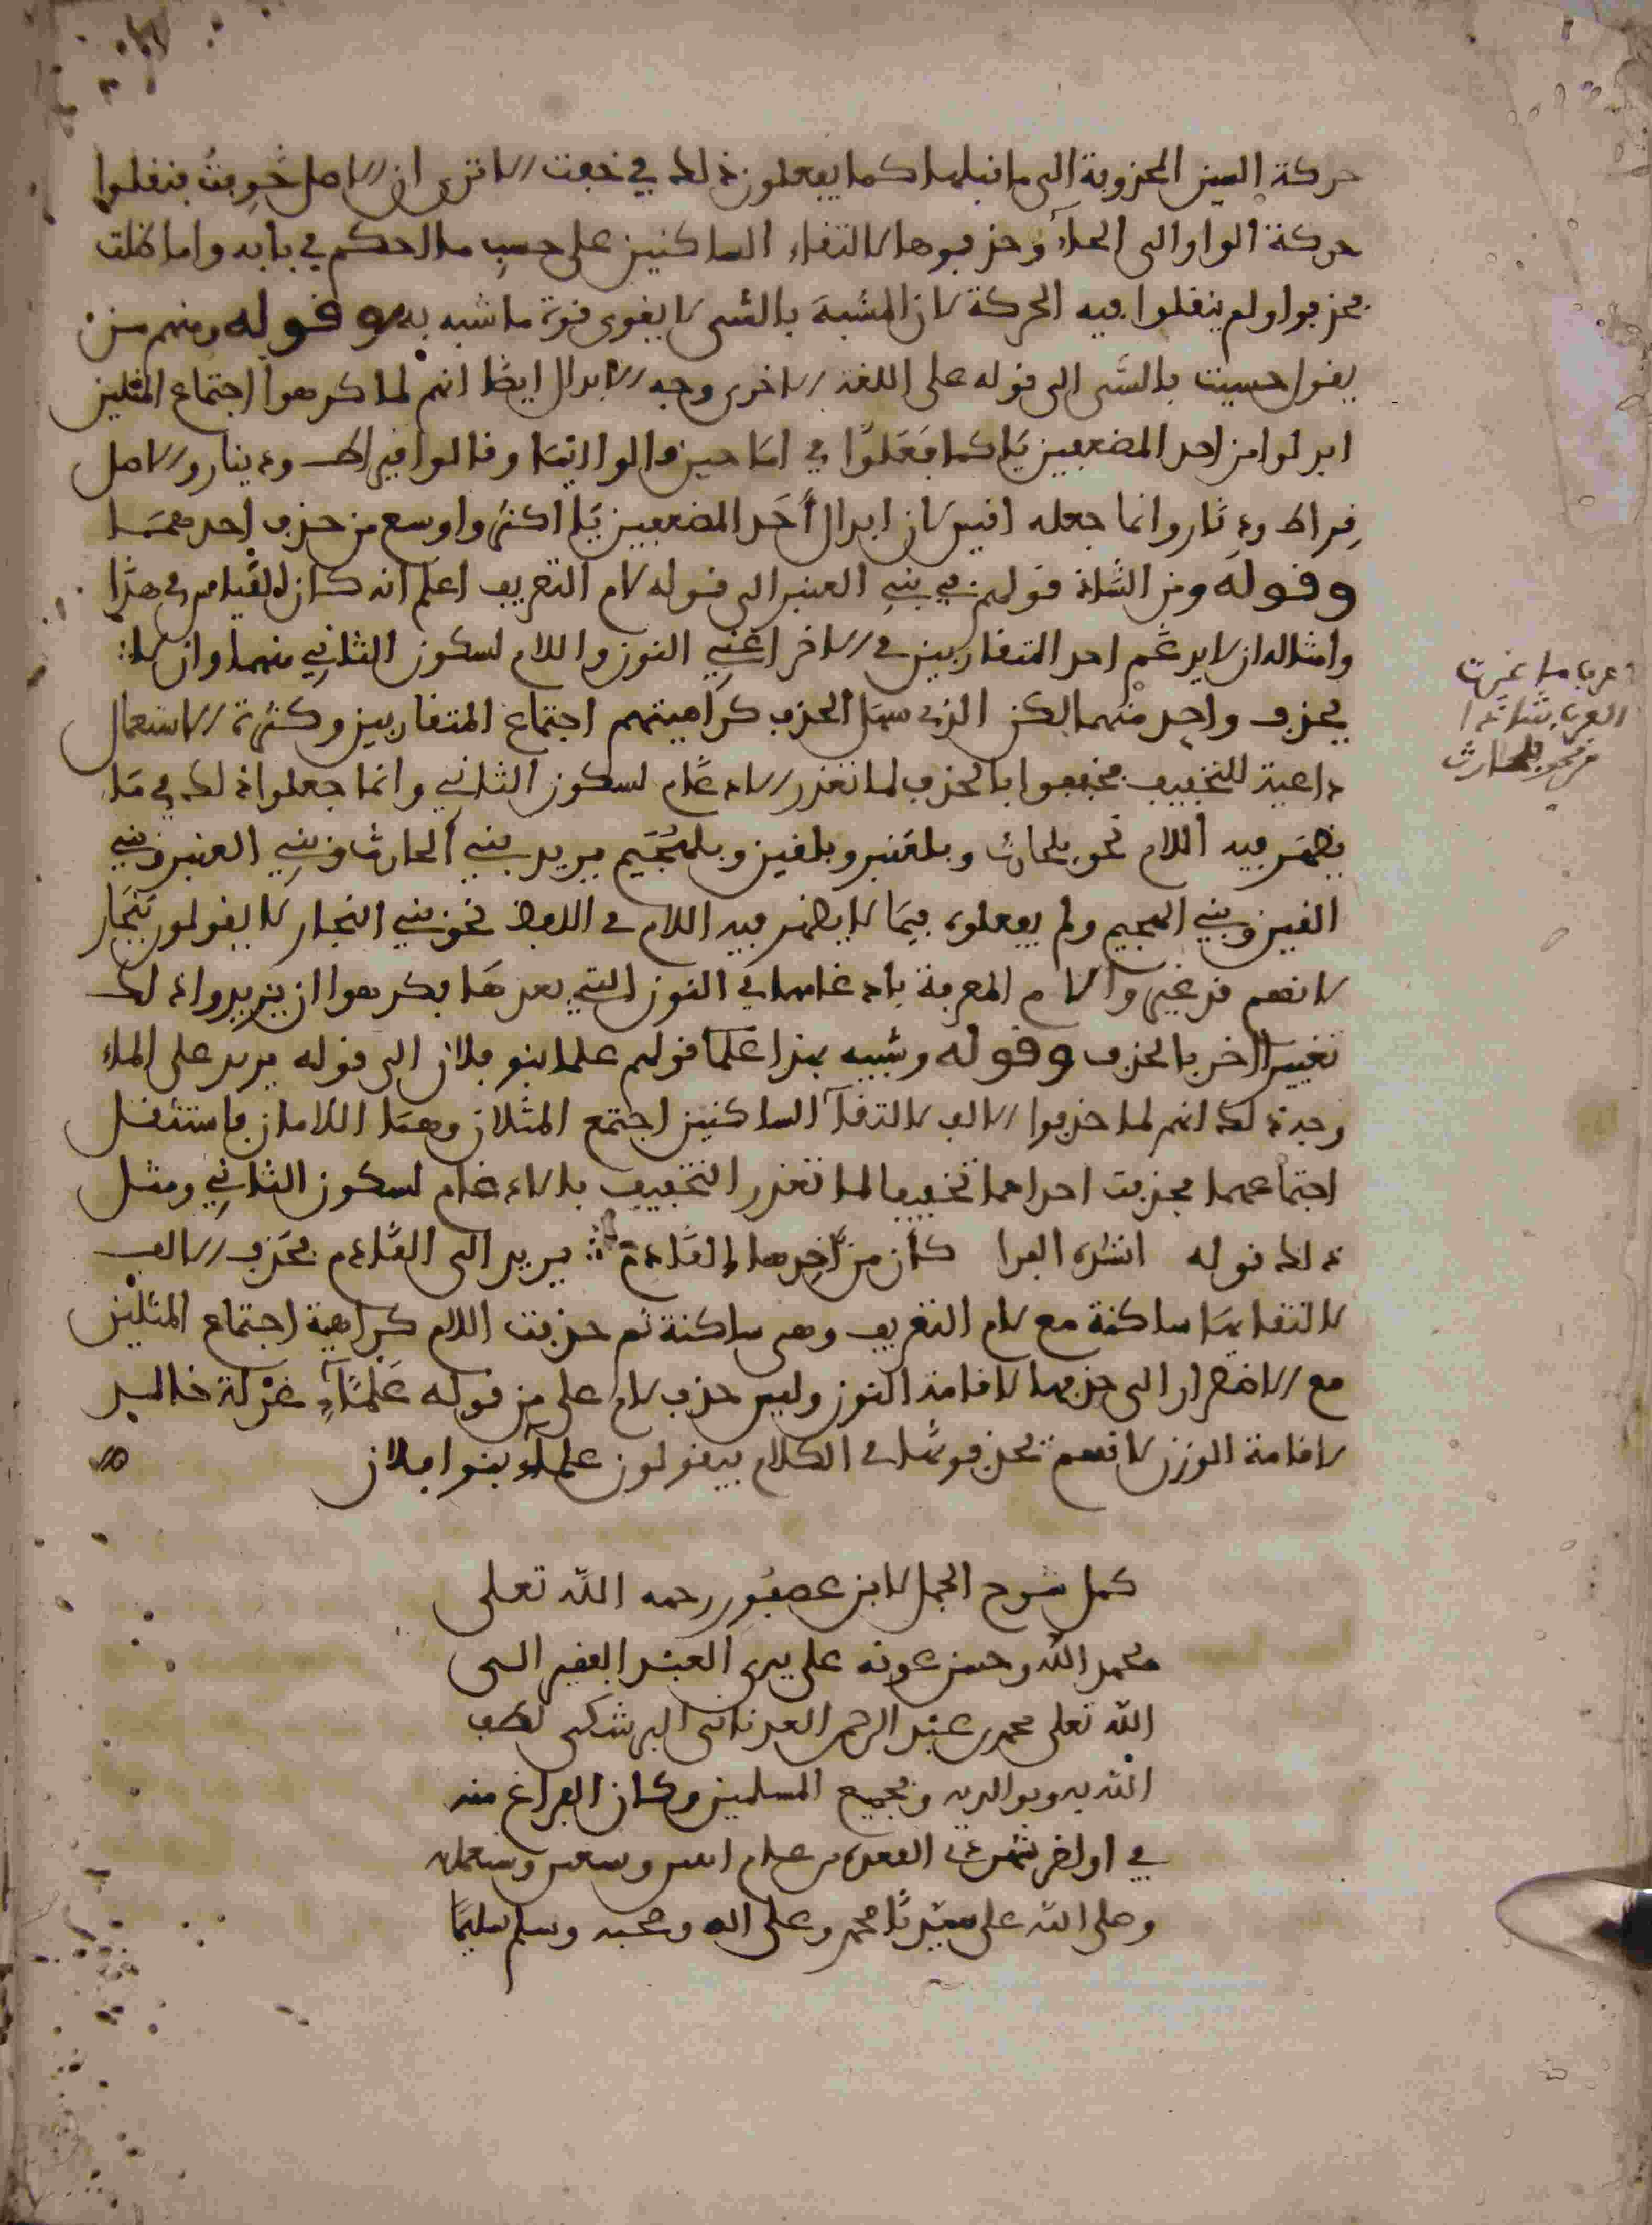 حركة العين المحذوفة الى ما قبلها كما يفعلون ذلك في خفت الا ترى ان الاصل خَوِفتُ فنقلوا
حركة الواو الى الخاء وحذفوها لالتقاء الساكنين على حسب ما احكم في بابه واما ظلت
فحذفوا ولم ينقلوا فيه الحركة لان المشبه بالشي لا يقوى قوة ما شبه به وقوله ومنهم من
يقول حسيت بالشي الى قوله على اللغة الاخرى وجه الابدال ايضا انهم لما كرهوا اجتماع المثلين
ابدلوا من احد المضعفين يا كما فعلوا في اما حين قالوا ايما وقالوا قيراط ودينار والاصل
قراط ودنار وانما جعله اقيس لان ابدال أحد المضعفين يا اكثر واوسع من حذف احدهما
وقوله ومن الشاذ قولهم في بني العنبر الى قوله لام التعريف اعلم انه كان القياس في هذا
وامثاله ان لا يدغم احد المتقاربين في الاخر اعني النون واللام لسكون الثاني منهما وان لا
يحذف واحد منهما لكن الذي سهل الحذف كراهيتهم اجتماع المتقاربين وكثرة الاستعمال
داعية للتخفيف فخففوا بالحذف لما تعذر الادغام لسكون الثاني وانما جعلوا ذلك في ما
يظهر فيه اللام نحو بلحارث وبلعنبر وبلقين وبلهجيم يريد بني الحارث وبني العنبر وبني
القين وبني الهجيم ولم يفعلوه فيما لا يظهر فيه اللام في اللفظ نحو بني النجار لا يقولون بنجار
لانهم قد غيروا لام المعرفة بادغامها في النون التي بعدها فكرهوا ان يزيدوا ذلك
تغييرا اخر بالحذف وقوله وشبيه بهذا علما قولهم علما بنو فلان الى قوله يريد على الماء
وجه ذلك انهم لما حذفوا الالف لالتقاء الساكنين اجتمع المثلان وهما اللامان فاستثقل
اجتماعهما فحذفت احداهما تخفيفا لما تعذر التخفيف بالادغام لسكون الثاني ومثل
ذلك قوله انشده الفرا كأن من آخرها القادم يريد الى القادم فحذف الالف
لالتقائها ساكنة مع لام التعريف وهي ساكنة ثم حذفت اللام كراهية اجتماع المثلين
مع الاضطرار الى حذفها لاقامة الوزن وليس حذف لام على من قوله علماء غرلة خالد
لاقامة الوزن لانهم يحذفونها في الكلام فيقولون علماء بنوا فلان
كمل شرح الجمل لابن عصفور رحمه الله تعلى
بحمد الله وحسن عونه على يدي العبد الفقير الى
الله تعلى محمد بن عبد الرحمن العدناني البرشكي لطف
الله به وبوالديه وبجميع المسلمين وكان الفراغ منه
في اواخر شهر ذي القعدة من عام وسبعمائه
وصلى الله على سيدنا محمد وعلى اله وصحبه وسلم تسليما
اعرف ما غيرت
العرب
من نحو بلحارث